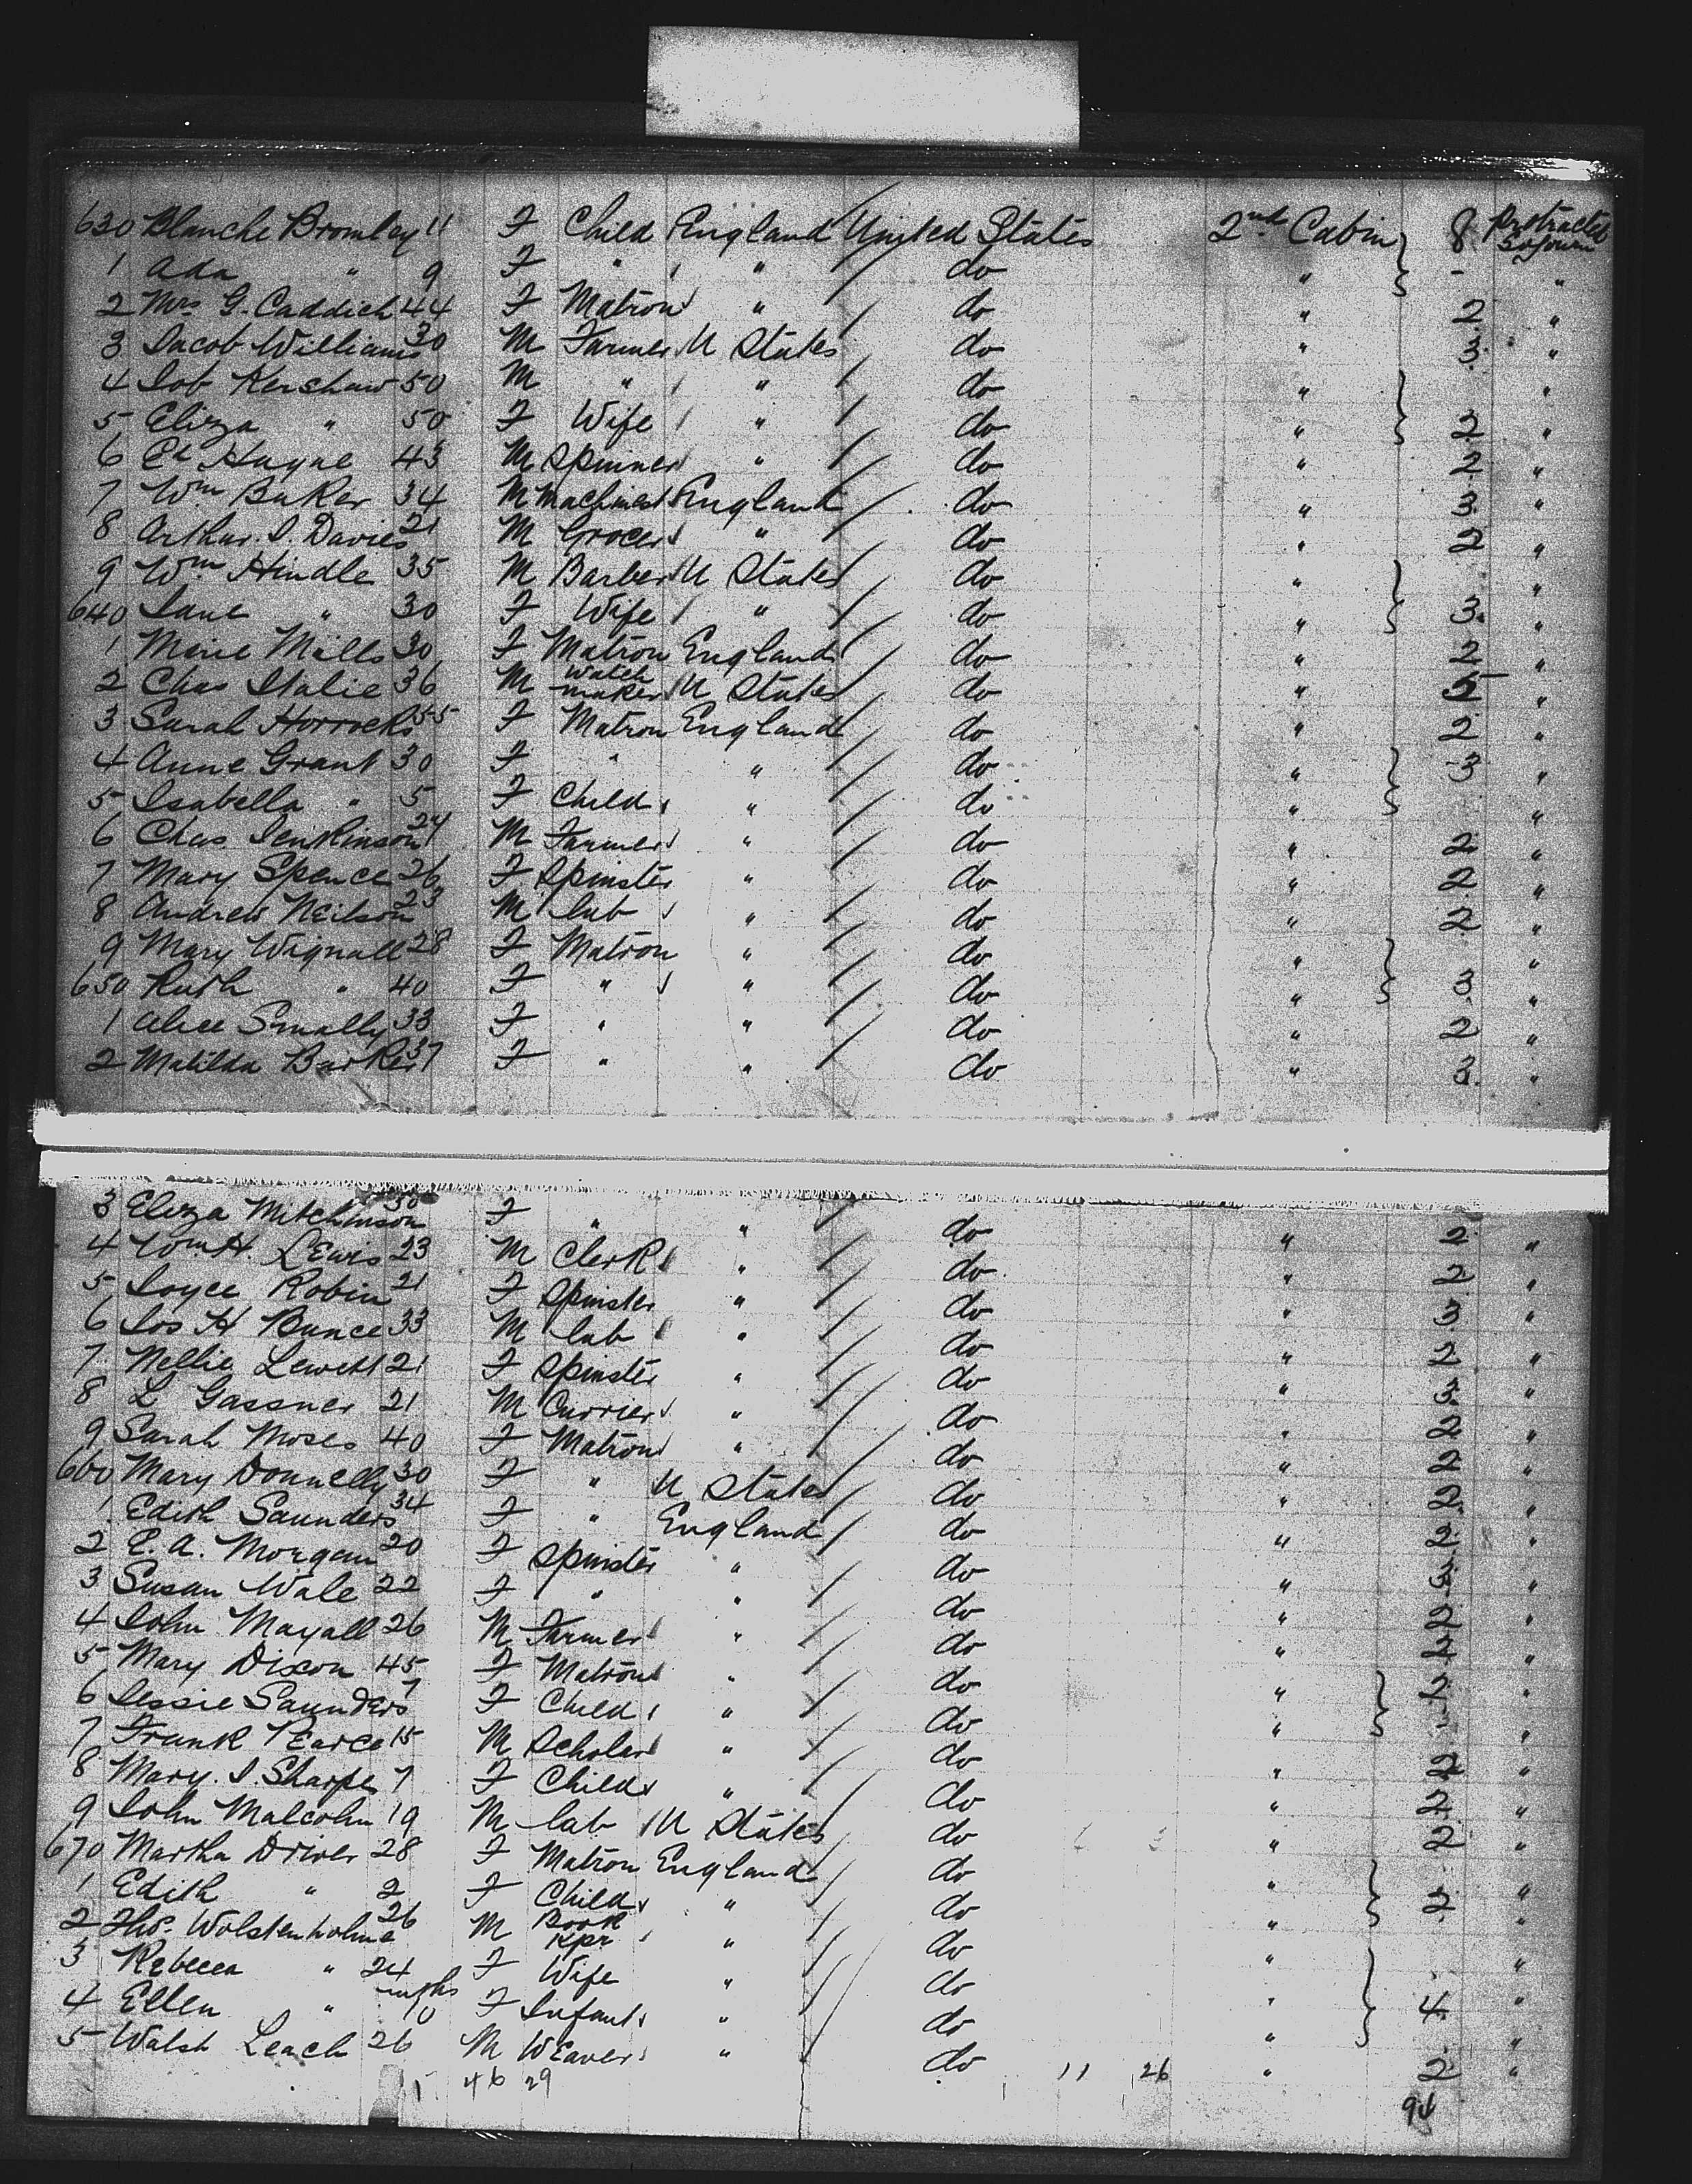 630 Blanche Bromley 11 F Child England United States 2nd Cabin 8 Protracted Sojourn
1 Ada " 9 F " " do " - "
2 Mrs G. Caddick 44 F Matron " do " 2 "
3 Jacob Williams 30 M Farmer U States do " 3 "
4 Job Kershaw 50 M " " do " "
5 Eliza " 50 F Wife " do " 2 "
6 Ed Hague 43 M Spinner " do " 2 "
7 Wm Baker 34 M Machinest England do " 3 "
8 Arthur J. Davies 21 M Grocer " do " 2 "
9 Wm Hindle 35 M Barber U States do " "
640 Jane " 30 F Wife " do " 3 "
1 Marie Mills 30 F Matron England do " 2 "
2 Chas Italie 36 M Watch maker U States do " 5 "
3 Sarah Horrocks 55 F Matron England do " 2 "
4 Anne Grant 30 F " " do " 3 "
5 Isabella " 5 F Child " do " "
6 Chas. Jenkinson 24 M Farmer " do " 2 "
7 Mary Spence 26 F Spinster " do " 2 "
8 Andrew Neilson 23 M lab " do " 2 "
9 Mary Wignall 28 F Matron " do " "
650 Ruth " 40 F " " do " 3 "
1 Alice Smally 33 F " " do " 2 "
2 Matilda Barker 37 F " " do " 3 "
3 Eliza Mitchinson 30 F " " do " 2 "
4 Wm H. Lewis 23 M Clerk " do " 2 "
5 Joyce Robin 21 F Spinster " do " 3 "
6 Jos H Bunce 33 M lab " do " 2 "
7 Nellie Lewett 21 F Spinster " do " 3 "
8 L Gassner 21 M Currier " do " 2 "
9 Sarah Moses 40 F Matron " do " 2 "
660 Mary Donnelly 30 F " U States do " 2 "
1 Edith Saunders 34 F " England do " 2 "
2 E. A. Morgan 20 F Spinster " do " 3 "
3 Susan Wale 22 F " " do " 2 "
4 John Mayall 26 M Farmer " do " 2 "
5 Mary Dixon 45 F Matron " do " 2 "
6 Jessie Saunders 7 F Child " do " "
7 Frank Pearce 15 M Scholar " do " 2 "
8 Mary. J. Sharpe 7 F Child " do " 2 "
9 John Malcolm 19 M lab U States do " 2 "
670 Martha Driver 28 F Matron England do " "
1 Edith " 2 F Child " do " 2 "
2 Thos. Wolstenholme 26 M Book Kpr " do "
3 Rebecca " 24 F Wife " do " "
4 Ellen " mnths 10 F Infant " do " 4 "
5 Walsh Leach 26 M Weaver " do 11 26 " 2 "
46 29
94